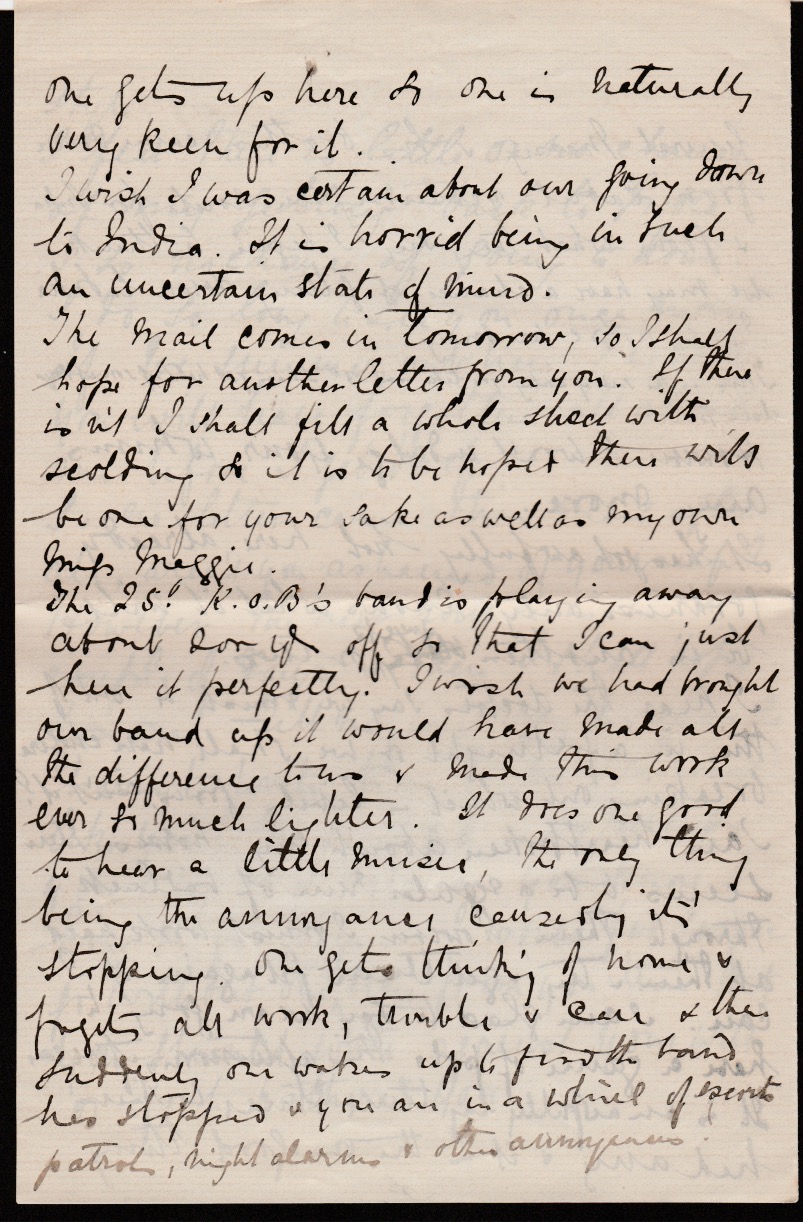 one gets up here so one is naturally
very keen for it.
I wish I was certain about our going down
to India. It is horrid being in such
an uncertain state of mind.
The mail comes in tomorrow, so I shall
hope for another letter from you. If there
is n't I shall fill a whole sheet with
scolding so it is to be hoped there will
be one for your sake as well as my own
Miss Maggie.
The 25th K.O.B's band is playing away
about 200 yds off so that I can just
hear it perfectly. I wish we had brought
our band up it would have made all
the difference to us & made this work
ever so much lighter. It does one good
to hear a little music, the only thing
being the annoyance caused by it's
stopping. One gets thinking of home &
forgets all work, trouble & care & then
suddenly one wakes up to find the band
has stopped & you are in a whirl of escorts
patrols, night alarms & other annoyances.